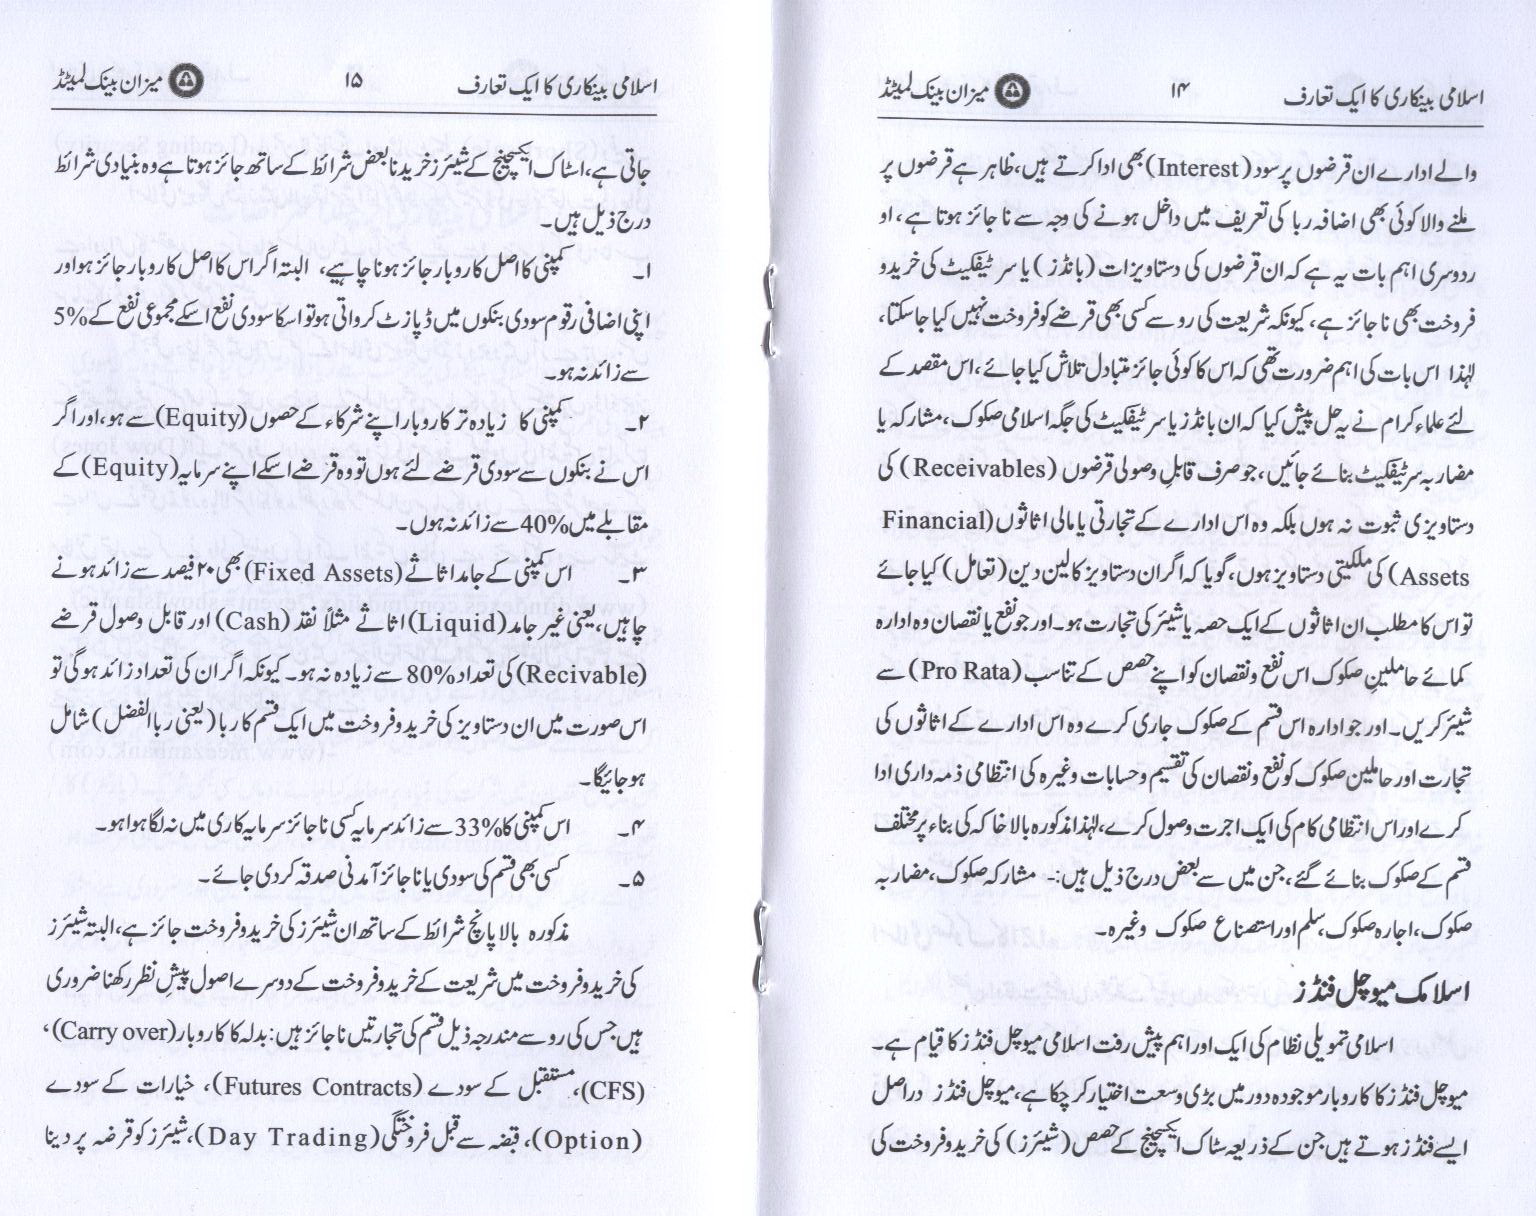 اسلامی بینکاری کا ایک تعارف ۱۴ میزان بینک لمیٹڈ
والے ادارے ان قرضوں پر سود (Interest) بھی ادا کرتے ہیں، ظاہر ہے قرضوں پر
ملنے والا کوئی بھی اضافہ ربا کی تعریف میں داخل ہونے کی وجہ سے ناجائز ہوتا ہے، او
ردوسری اہم بات یہ ہے کہ ان قرضوں کی دستاویزات (بانڈز) یا سرٹیفکیٹ کی خرید و
فروخت بھی ناجائز ہے، کیونکہ شریعت کی رو سے کسی بھی قرضے کو فروخت نہیں کیا جاسکتا،
لہٰذا اس بات کی اہم ضرورت تھی کہ اس کا کوئی جائز متبادل تلاش کیا جائے، اس مقصد کے
لئے علماء کرام نے یہ حل پیش کیا کہ ان بانڈز یا سرٹیفکیٹ کی جگہ اسلامی صکوک، مشارکہ یا
مضاربہ سرٹیفکیٹ بنائے جائیں، جو صرف قابلِ وصولی قرضوں (Receivables) کی
دستاویزی ثبوت نہ ہوں بلکہ وہ اس ادارے کے تجارتی یا مالی اثاثوں (Financial
Assets) کی ملکیتی دستاویز ہوں، گویا کہ اگر ان دستاویز کا لین دین (تعامل) کیا جائے
تو اس کا مطلب ان اثاثوں کے ایک حصہ یا شیئر کی تجارت ہو۔ اور جو نفع یا نقصان وہ ادارہ
کمائے حاملینِ صکوک اس نفع و نقصان کو اپنے حصص کے تناسب (Pro Rata) سے
شیئر کریں۔ اور جو ادارہ اس قسم کے صکوک جاری کرے وہ اس ادارے کے اثاثوں کی
تجارت اور حاملین صکوک کو نفع و نقصان کی تقسیم و حسابات وغیرہ کی انتظامی ذمہ داری ادا
کرے اور اس انتظامی کام کی ایک اجرت وصول کرے، لہٰذا مذکورہ بالا خاکہ کی بناء پر مختلف
قسم کے صکوک بنائے گئے، جن میں سے بعض درج ذیل ہیں:- مشارکہ صکوک، مضاربہ
صکوک، اجارہ صکوک، سلم اور استصناع صکوک وغیرہ۔
اسلامک میوچل فنڈز
اسلامی تمویلی نظام کی ایک اور اہم پیش رفت اسلامی میوچل فنڈز کا قیام ہے۔
میوچل فنڈز کا کاروبار موجودہ دور میں بڑی وسعت اختیار کر چکا ہے، میوچل فنڈز دراصل
ایسے فنڈز ہوتے ہیں جن کے ذریعہ سٹاک ایکسچینج کے حصص (شیئرز) کی خرید و فروخت کی
اسلامی بینکاری کا ایک تعارف ۱۵ میزان بینک لمیٹڈ
جاتی ہے، اسٹاک ایکسچینج کے شیئرز خریدنا بعض شرائط کے ساتھ جائز ہوتا ہے وہ بنیادی شرائط
درج ذیل ہیں۔
۱۔ کمپنی کا اصل کاروبار جائز ہونا چاہیے، البتہ اگر اس کا اصل کاروبار جائز ہو اور
اپنی اضافی رقوم سودی بنکوں میں ڈپازٹ کرواتی ہو تو اسکا سودی نفع اسکے مجموعی نفع کے %5
سے زائد نہ ہو۔
۲۔ کمپنی کا زیادہ تر کاروبار اپنے شرکاء کے حصوں (Equity) سے ہو، اور اگر
اس نے بنکوں سے سودی قرضے لئے ہوں تو وہ قرضے اسکے اپنے سرمایہ (Equity) کے
مقابلے میں %40 سے زائد نہ ہوں۔
۳۔ اس کمپنی کے جامد اثاثے (Fixed Assets) بھی ۲۰ فیصد سے زائد ہونے
چاہیں، یعنی غیر جامد (Liquid) اثاثے مثلاً نقد (Cash) اور قابل وصول قرضے
(Recivable) کی تعداد %80 سے زیادہ نہ ہو۔ کیونکہ اگر ان کی تعداد زائد ہوگی تو
اس صورت میں ان دستاویز کی خرید و فروخت میں ایک قسم کا ربا (یعنی ربا الفضل) شامل
ہوجائیگا۔
۴۔ اس کمپنی کا %33 سے زائد سرمایہ کسی ناجائز سرمایہ کاری میں نہ لگا ہوا ہو۔
۵۔ کسی بھی قسم کی سودی یا ناجائز آمدنی صدقہ کردی جائے۔
مذکورہ بالا پانچ شرائط کے ساتھ ان شیئرز کی خرید و فروخت جائز ہے، البتہ شیئرز
کی خرید و فروخت میں شریعت کے خرید و فروخت کے دوسرے اصول پیشِ نظر رکھنا ضروری
ہیں جس کی رو سے مندرجہ ذیل قسم کی تجارتیں ناجائز ہیں: بدلہ کا کاروبار (Carry over)،
(CFS)، مستقبل کے سودے (Futures Contracts)، خیارات کے سودے
(Option)، قبضہ سے قبل فروختگی (Day Trading)، شیئرز کو قرضہ پر دینا